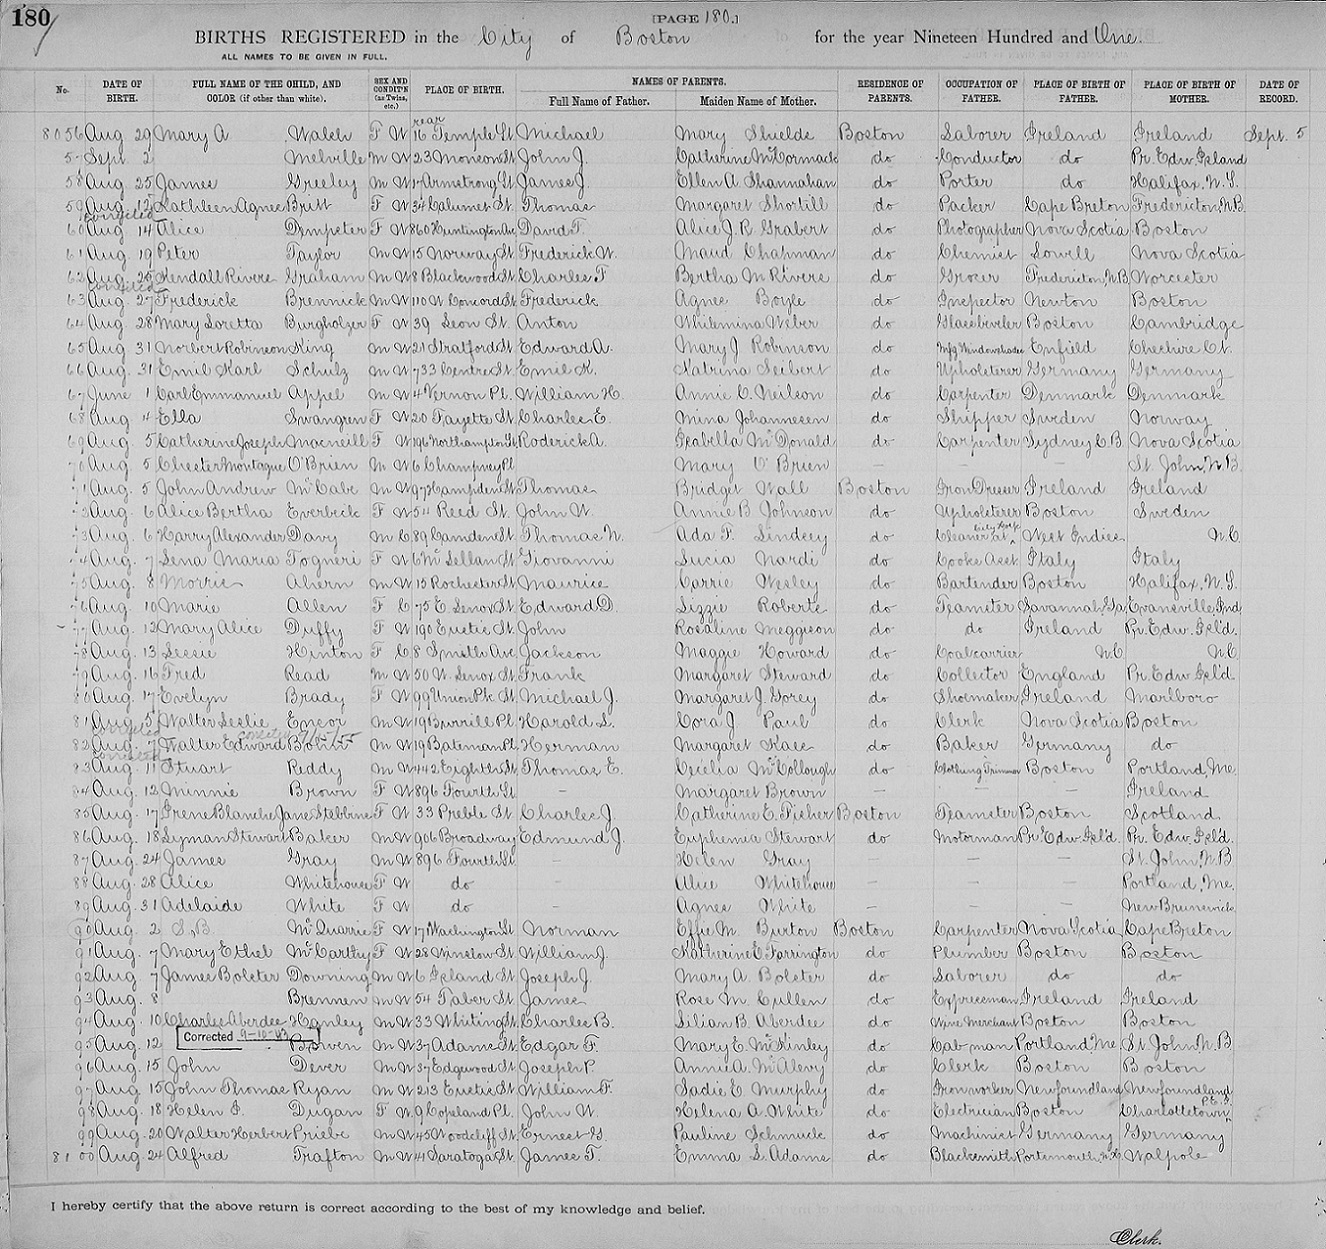 180
[PAGE 180.]
BIRTHS REGISTERED in the City of Boston for the year Nineteen Hundred and One.
ALL NAMES TO BE GIVEN IN FULL.
No. DATE OF BIRTH. FULL NAME OF THE CHILD, AND COLOR (if other than white). SEX AND CONDIT'N (as Twins, etc.) PLACE OF BIRTH. NAMES OF PARENTS. Full Name of Father. Maiden Name of Mother. RESIDENCE OF PARENTS. OCCUPATION OF FATHER. PLACE OF BIRTH OF FATHER. PLACE OF BIRTH OF MOTHER. DATE OF RECORD.
8056 Aug. 29 Mary A. Walsh F W rear 16 Temple St Michael Mary Shields Boston Laborer Ireland Ireland Sept. 5
57 Sept. 2 Melville M W 23 Monson St John J. Catherine McCormack do Conductor do Pr. Edw. Island
58 Aug. 25 James Greeley M W 17 Armstrong St James J. Ellen A. Shannahan do Porter do Halifax, N.S.
59 Aug. 12 Kathleen Agnes Britt F W 34 Calumet St. Thomas Margaret Shortill do Packer Cape Breton Fredericton, N.B.
Corrected
60 Aug. 14 Alice Dempster F W 860 Huntington Av David F. Alice J. R. Grabert do Photographer Nova Scotia Boston
61 Aug. 19 Peter Taylor M W 15 Norway St Frederick W. Maud Chapman do Chemist Lowell Nova Scotia
62 Aug. 25 Kendall Rivers Graham M W 8 Blackwood St Charles F Bertha M Rivers do Grocer Fredericton, N.B. Worcester
Corrected
63 Aug. 27 Frederick Brennick M W 110 W. Concord St Frederick Agnes Boyle do Inspector Newton Boston
64 Aug. 28 Mary Loretta Burgholzer F W 39 Leon St. Anton Whilemina Weber do Glassbevler Boston Cambridge
65 Aug. 31 Norbert Robinson King M W 21 Stratford St Edward A. Mary J Robinson do Mfg Windowshades Enfield Cheshire Ct.
66 Aug. 31 Emil Karl Schulz M W 733 Centre St Emil K. Katrina Seibert do Upholsterer Germany Germany
67 June 1 Carl Emmanuel Appel M W 4 Vernon Pl. William H. Annie C. Neilson do Carpenter Denmark Denmark
68 Aug. 4 Ella Swangren F W 20 Fayette St. Charles E. Mina Johannesen do Shipper Sweden Norway
69 Aug. 5 Catherine Joseph Macneill F W 196 Northampton St Roderick A. Isabella McDonald do Carpenter Sydney C.B. Nova Scotia
70 Aug. 5 Chester Montague O'Brien M W 6 Champney Pl Mary O'Brien — — — St. John, N.B.
71 Aug. 5 John Andrew McCabe M W 97 Hampden St Thomas Bridget Wall Boston Iron Dresser Ireland Ireland
72 Aug. 6 Alice Bertha Everbeck F W 54 Reed St. John W. Annie B Johnson do Upholsterer Boston Sweden
73 Aug. 6 Harry Alexander Davy M C 89 Camden St Thomas N. Ada F. Lindsey do Cleaner West Indies N C
74 Aug. 7 Lena Maria Togneri F W 6 McLellan St Giovanni Lucia Nardi do Cooks Asst Italy Italy
75 Aug. 8 Morris Ahern M W 15 Rochester St Maurice Carrie Wesley do Bartender Boston Halifax, N.S.
76 Aug. 10 Marie Allen F C 75 E. Lenox St. Edward D. Lizzie Roberts do Teamster Savannah, Ga Evansville, Ind
77 Aug. 12 Mary Alice Duffy F W 190 Eustis St. John Rosaline Meggison do do Ireland Pr. Edw. Isl'd.
78 Aug. 13 Leesie Hinton F C 8 Smith Ave Jackson Maggie Howard do Coal carrier N C N C
79 Aug. 16 Fred Read M W 50 W. Lenox St. Frank Margaret Steward do Collector England Pr. Edw Isl'd.
80 Aug. 17 Evelyn Brady F W 99 Union Pk St. Michael J. Margaret J. Gorey do Shoemaker Ireland Marlboro
81 Aug. 5 Walter Leslie Encox M W 19 Burrill Pl. Harold L. Cora J Paul do Clerk Nova Scotia Boston
Corrected
82 Aug. 7 Walter Edward M W 19 Bateman Pl Herman Margaret Kass do Baker Germany do
Corrected
83 Aug. 11 Stuart Reddy M W 442 Eighth St Thomas E. Cecilia McCollough do Clothing Trimmer Boston Portland, Me.
84 Aug. 12 Minnie Brown F W 896 Fourth St — Margaret Brown — — — Ireland
85 Aug. 17 Irene Blanche Jane Stebbins F W 33 Preble St. Charles J. Catherine E. Fisher Boston Teamster Boston Scotland
86 Aug. 18 Lyman Stewart Baker M W 906 Broadway Edmund J. Euphemia Stewart do Motorman Pr. Edw. Isl'd. Pr. Edw. Isl'd.
87 Aug. 24 James Gray M W 896 Fourth St — Helen Gray — — — St. John, N.B
88 Aug. 28 Alice Whitehouse F W do — Alice Whitehouse — — — Portland, Me.
89 Aug. 31 Adelaide White F W do — Agnes White — — — New Brunswick
90 Aug. 2 S. B. McQuarrie F W 17 Washington St Norman Effie M. Burton Boston Carpenter Nova Scotia Cape Breton
91 Aug. 7 Mary Ethel McCarthy F W 28 Winslow St William J. Katherine E Farrington do Plumber Boston Boston
92 Aug. 7 James Bolster Downing M W 6 Island St Joseph J. Mary A. Bolster do Laborer do do
93 Aug. 8 Brennen M W 54 Taber St. James Rose M. Cullen do Expressman Ireland Ireland
94 Aug. 10 Charles Aberdee Hanley M W 33 Whiting St Charles B. Lilian B. Aberdee do Wine Merchant Boston Boston
Corrected
95 Aug. 12 Bowen M W 37 Adams St Edgar F. Mary E. McKinley do Cab-man Portland Me St. John N.B
96 Aug. 15 John Dever M W 37 Edgewood St Joseph P. Annie A. McAlevy do Clerk Boston Boston
97 Aug. 15 John Thomas Ryan M W 213 Eustis St William F. Sadie E. Murphy do Ironworker Newfoundland Newfoundland
98 Aug. 18 Helen I. Dugan F W 9 Copeland Pl. John W. Helena A. White do Electrician Boston Charlottetown P.E.I.
99 Aug. 20 Walter Herbert Priebe M W 45 Woodcliff St Ernest G. Pauline Schmuck do Machinist Germany Germany
8100 Aug. 24 Alfred Trafton M W 41 Saratoga St James T. Emma S. Adams do Blacksmith Portsmouth, N.H. Walpole
I hereby certify that the above return is correct according to the best of my knowledge and belief.
Clerk.